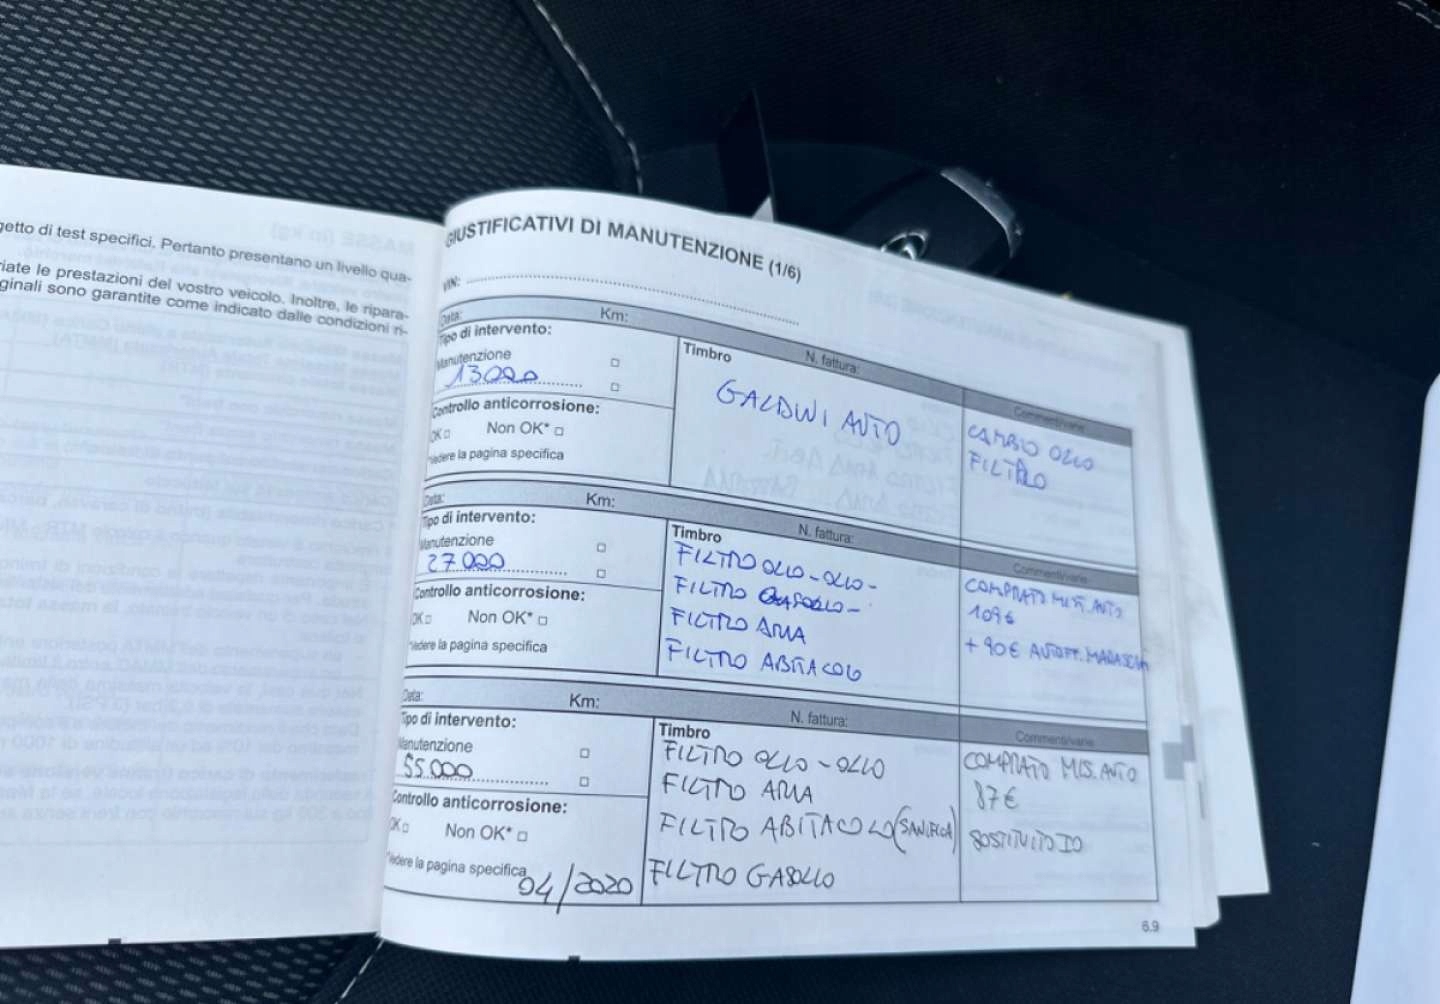 getto di test specifici. Pertanto presentano un livello qua-
riate le prestazioni del vostro veicolo. Inoltre, le ripara-
ginali sono garantite come indicato dalle condizioni ri-
GIUSTIFICATIVI DI MANUTENZIONE (1/6)
VIN:
Data: Km:
Tipo di intervento:
Manutenzione
13000
Controllo anticorrosione:
OK Non OK*
*Vedere la pagina specifica
Timbro N. fattura:
GALDINI AUTO
Commenti/varie
CAMBIO OLIO
FILTRO
Data: Km:
Tipo di intervento:
Manutenzione
27000
Controllo anticorrosione:
OK Non OK*
*Vedere la pagina specifica
Timbro N. fattura:
FILTRO OLIO-OLIO-
FILTRO GASOLIO-
FILTRO ARIA
FILTRO ABITACOLO
Commenti/varie
COMPRATO AUTO
109€
+ 90€
Data: Km:
Tipo di intervento:
Manutenzione
55000
Controllo anticorrosione:
OK Non OK*
*Vedere la pagina specifica
04/2020
Timbro N. fattura:
FILTRO OLIO-OLIO
FILTRO ARIA
FILTRO ABITACOLO
FILTRO GASOLIO
Commenti/varie
COMPRATO MIS.AUTO
87€
SOSTITUITO IO
6.9